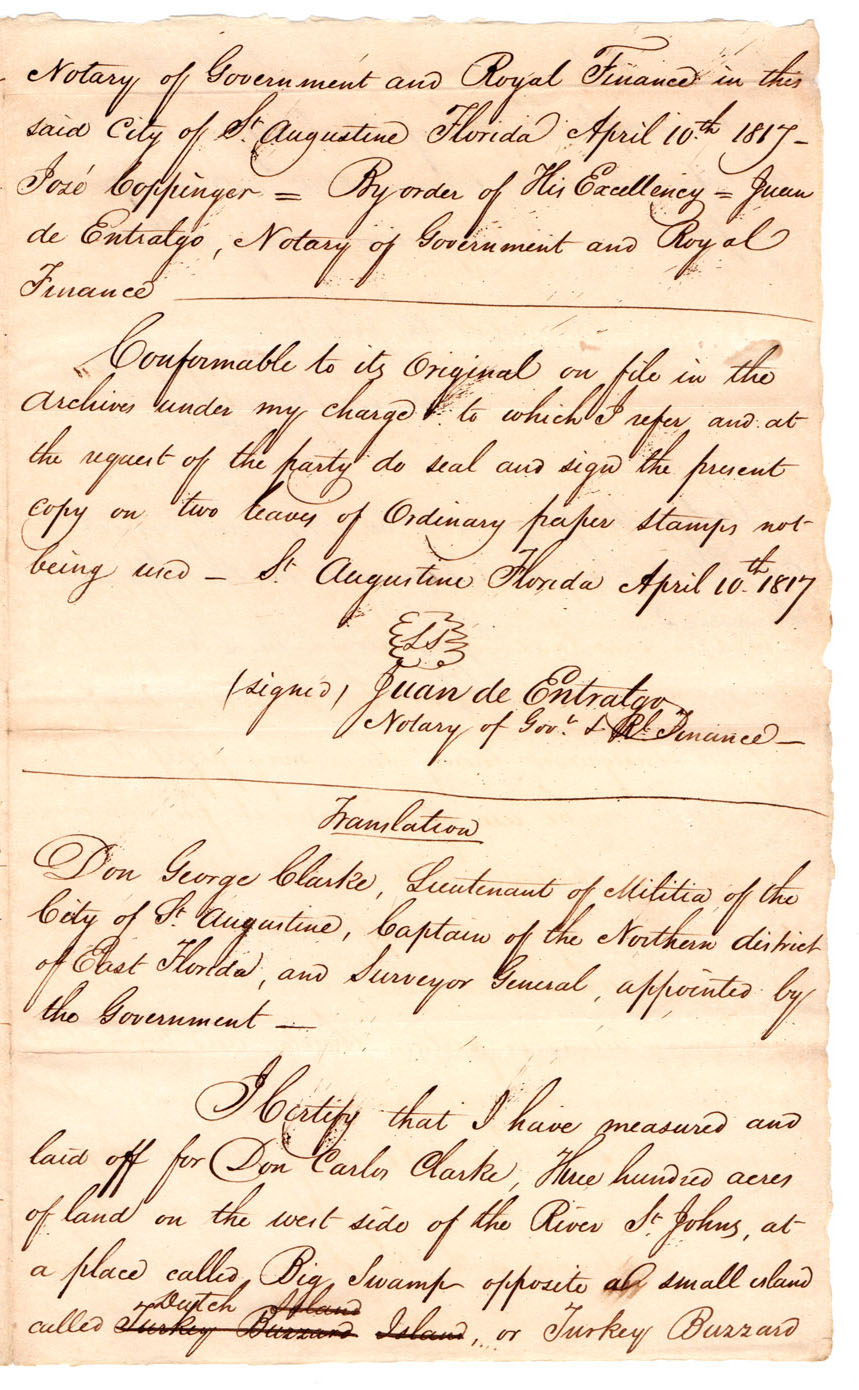 Notary of Government and Royal Finance in this
said City of St. Augustine Florida April 10th 1817 –
José Coppinger = By order of His Excellency = Juan
de Entralgo, Notary of Government and Royal
Finance
Conformable to its Original on file in the
archives under my charge to which I refer and at
the request of the party do seal and sign the present
copy on two leaves of Ordinary paper stamps not
being used – St. Augustine Florida April 10th 1817
LS
(signed) Juan de Entralgo
Notary of Govt. & Rl. Finance –
Translation
Don George Clarke, Lieutenant of Militia of the
City of St. Augustine, Captain of the Northern district
of East Florida, and Surveyor General, appointed by
the Government –
I Certify that I have measured and
laid off for Don Carlos Clarke, Three hundred acres
of land on the west side of the River St. Johns, at
a place called Big Swamp opposite a small island
Dutch Island
called Turkey Buzzard Island, or Turkey Buzzard